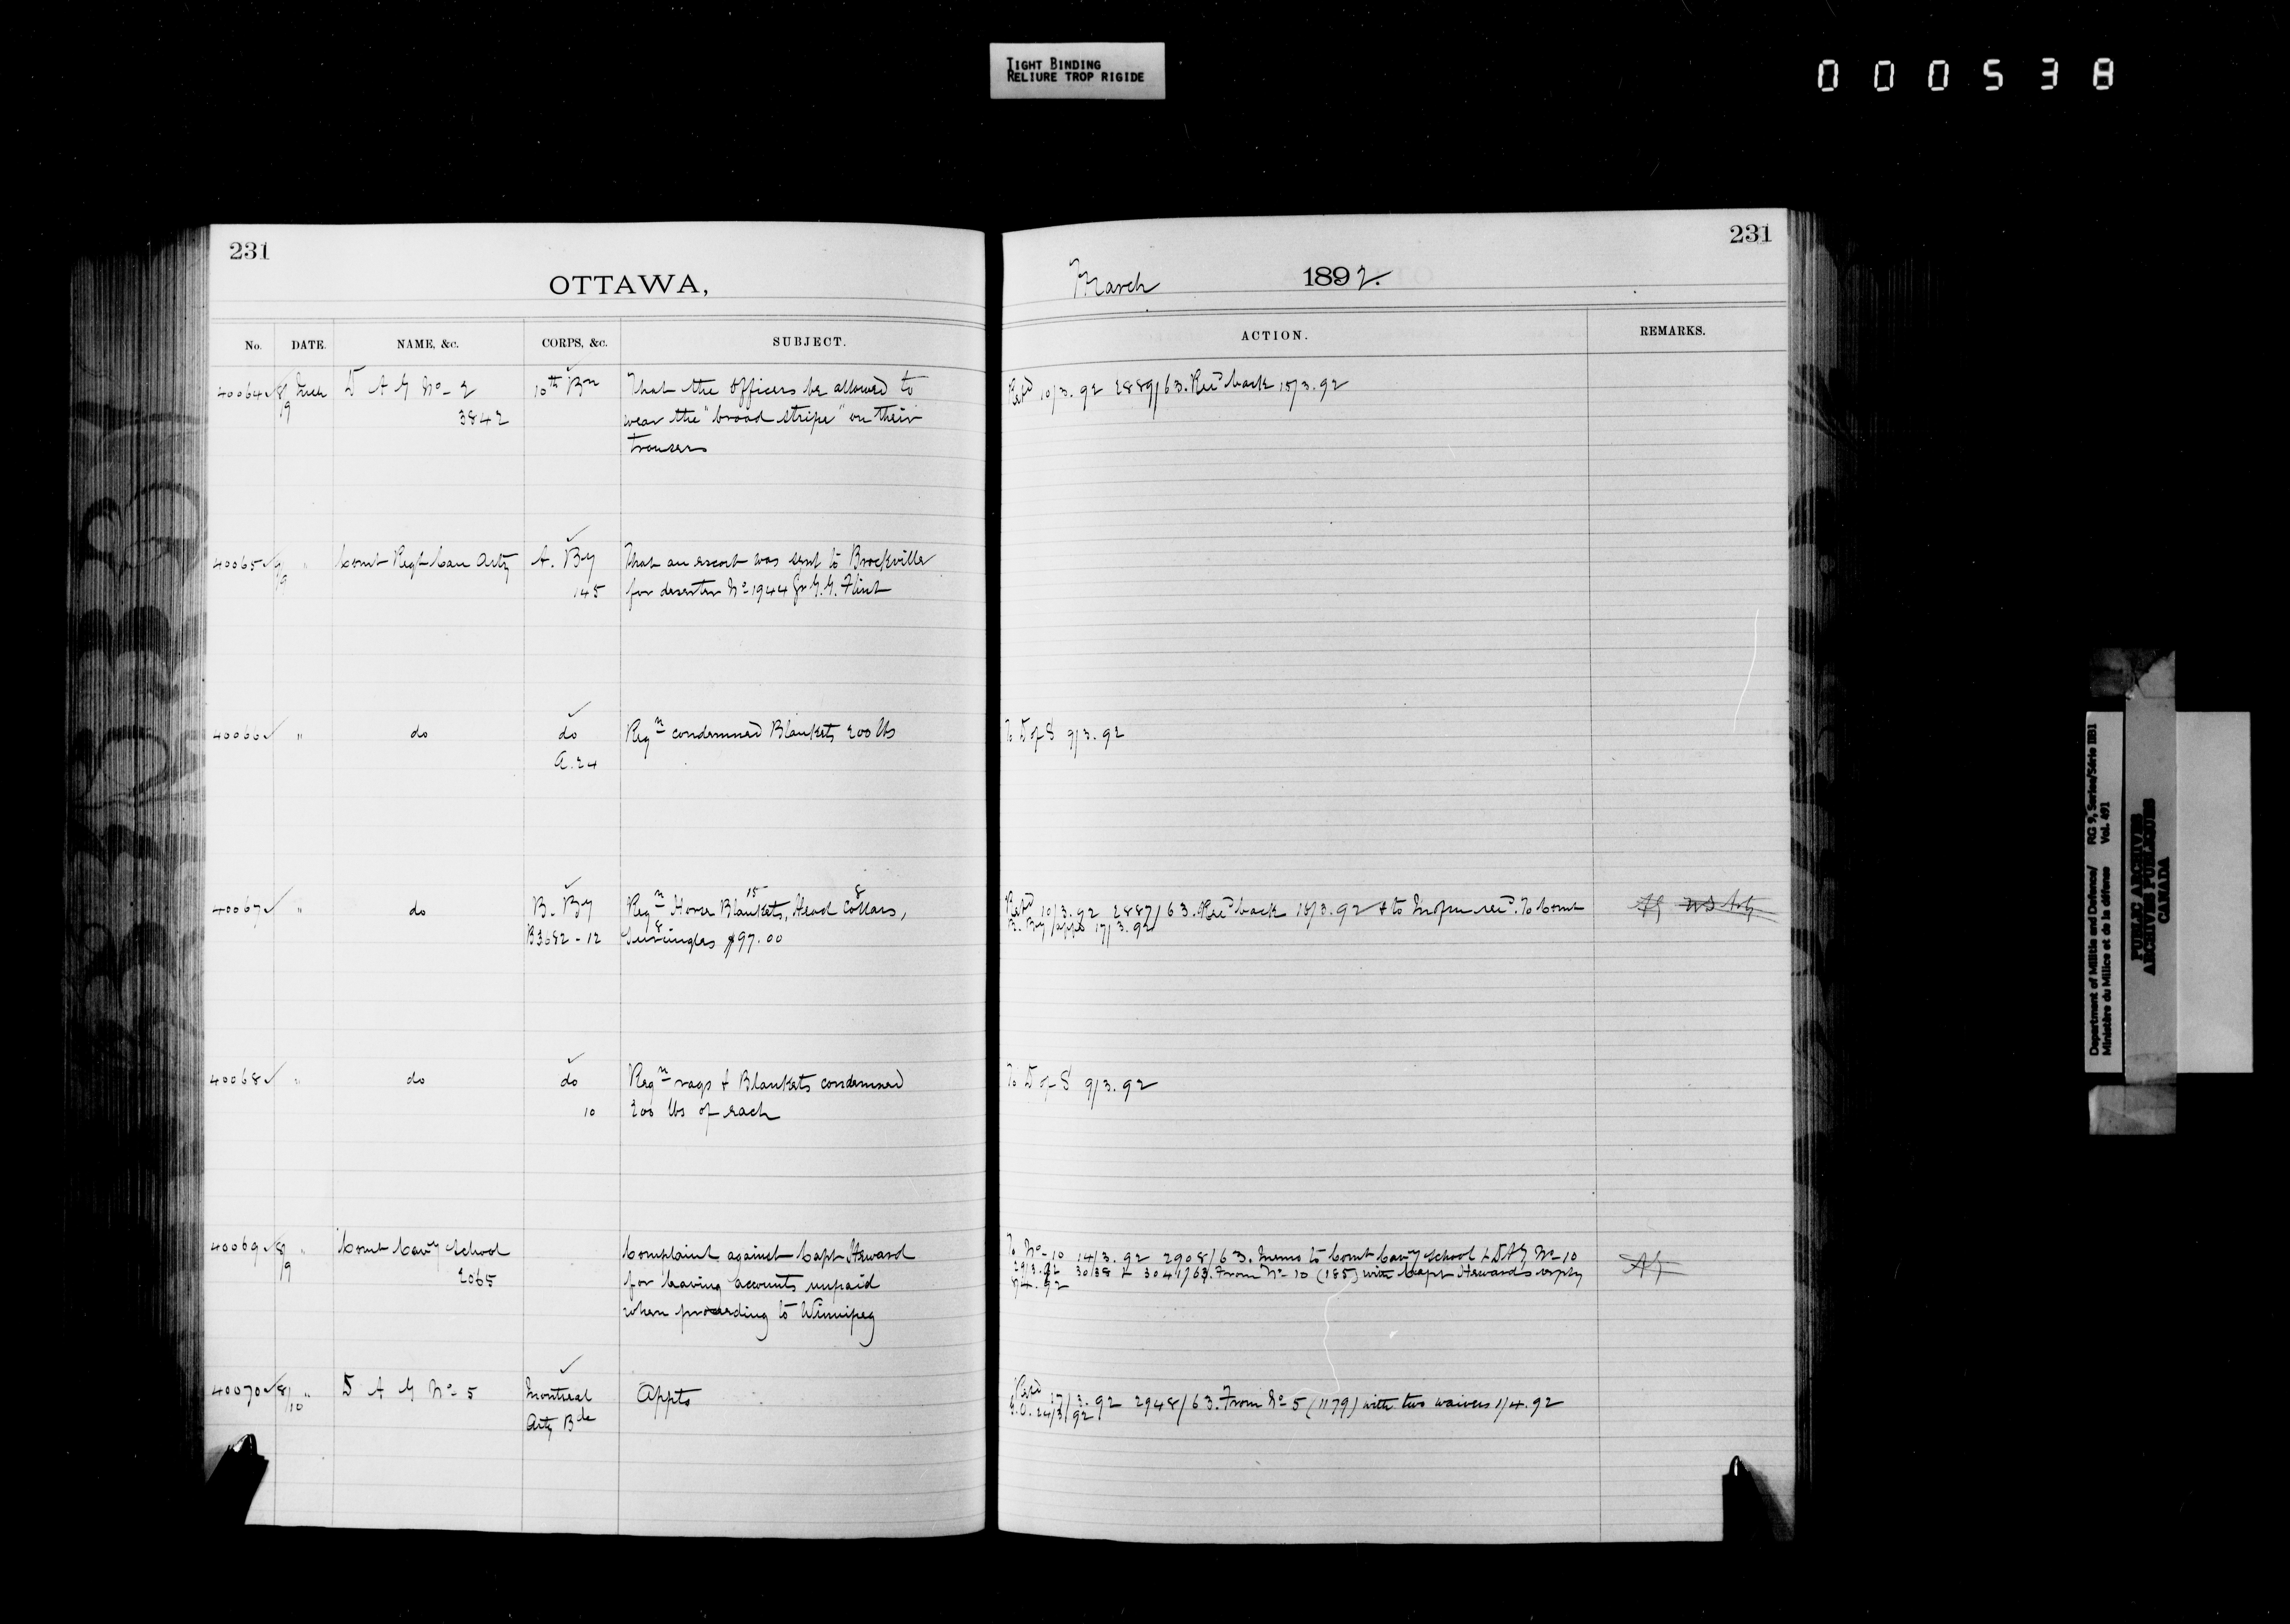 TIGHT BINDING
RELIURE TROP RIGIDE
000538
231
OTTAWA,
No. DATE. NAME, &c. CORPS, &c. SUBJECT.
40064 8/9 Mch D A G No 2 10th Bn That the Officers be allowed to
3842 wear the "broad stripe" on their
trousers
40065 " Comt Regt Can Arty A. By That an escort was sent to Brockville
145 for deserter No 1944 Gr G. G. Flint
40066 " do do Reqn condemned Blankets 200 lbs
A.24
40067 do B. By Reqn Horse Blankets, 15 Head Collars, 8
B3682-12 Surcingles 8 $97.00
40068 " do do Reqn rags & Blankets condemned
10 200 lbs of each
40069 8/9 " Comt Cavy School Complaint against Capt Heward
2065 for leaving accounts unpaid
when proceeding to Winnipeg
40070 8/10 " D A G No 5 Montreal Appts
Arty Bde
231
March 1892.
ACTION. REMARKS.
Refd 10/3.92 2889/63. Recd back 15/3.92
To D of S 9/3.92
Refd 10/3.92 2887/63. Recd back 18/3.92 & to Inspr recd. To Comt
B. By 17/3.92
To D of S 9/3.92
To No 10 14/3.92 2908/63. Memo to Comt Cavy School & DAG No 10
29/3.92 3038 & 3041/63. From No 10 (185) with Capt Heward's reply
7/4.92
Refd 17/3.92 2948/63. From No 5 (1179) with two waivers 1/4.92
G.O. 24/3/92
Department of Militia and Defence/ RG 9, Series/Série IIB1
Ministère du Milice et de la défense Vol. 491
PUBLIC ARCHIVES
ARCHIVES PUBLIQUES
CANADA